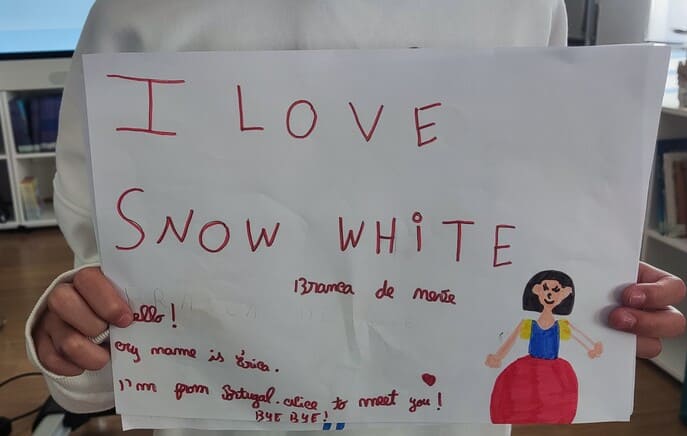 I LOVE
SNOW WHiTE
Branca de neve
Hello!
my name is Érica.
I'm from Portugal. Nice to meet you!
BYE BYE!